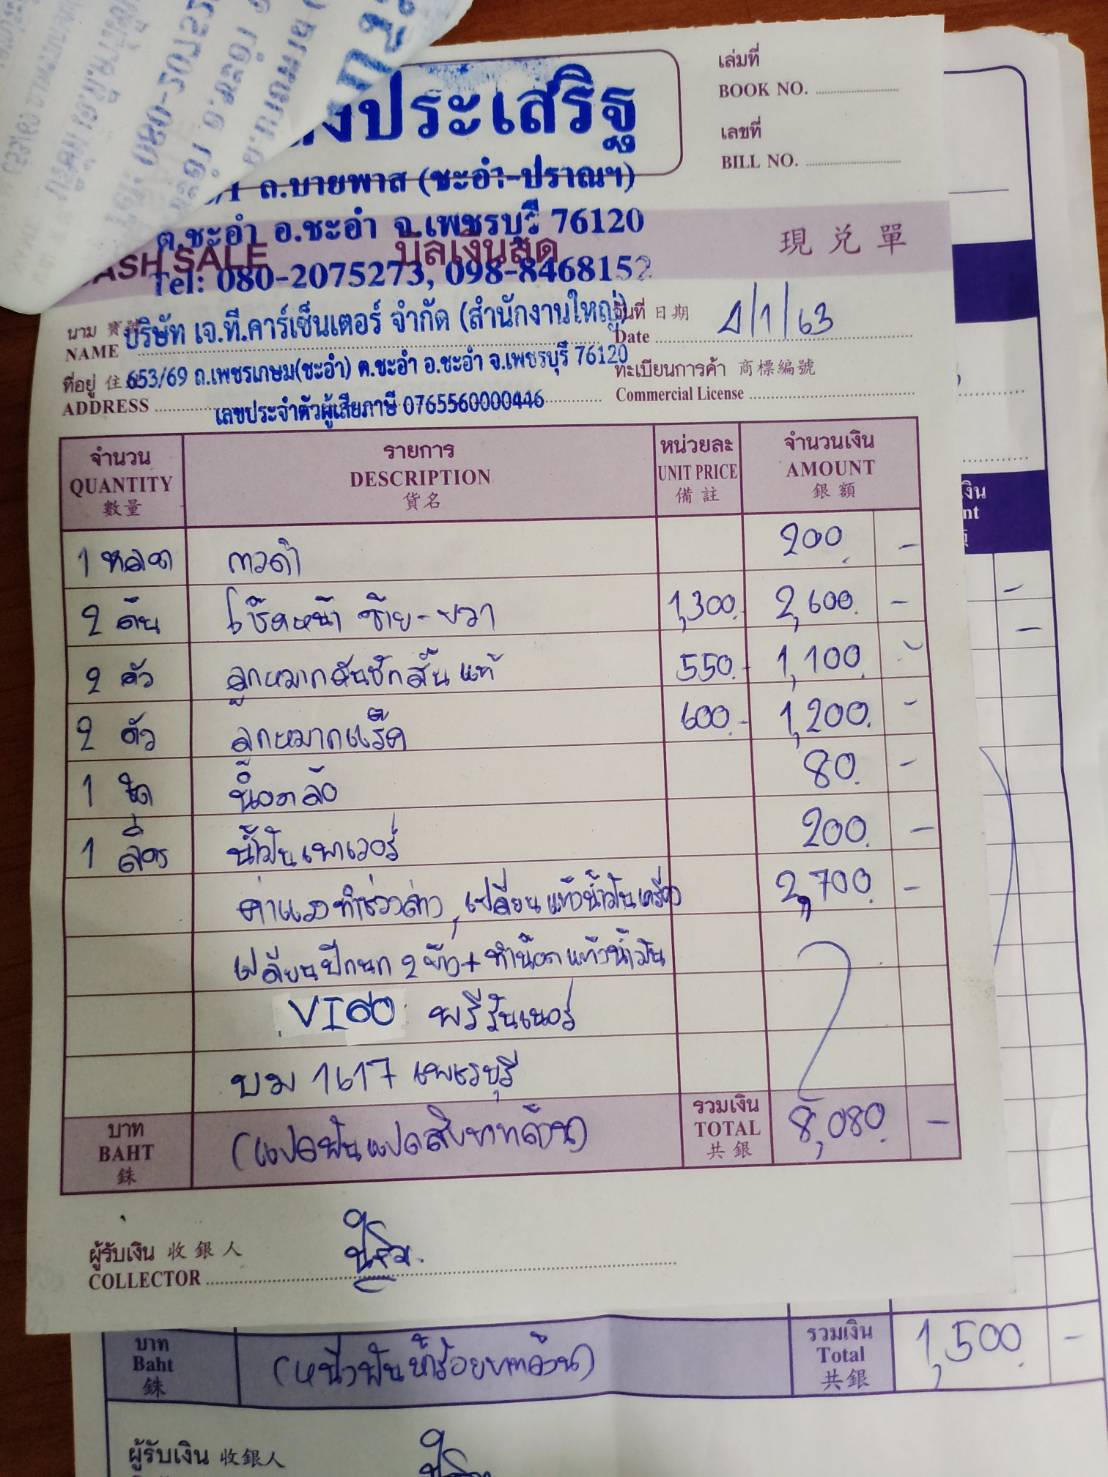 งประเสริฐ
เล่มที่
BOOK NO.
เลขที่
BILL NO.
/1 ถ.บายพาส (ชะอำ-ปราณฯ)
ต.ชะอำ อ.ชะอำ จ.เพชรบุรี 76120
CASH SALE บิลเงินสด 現兌單
Tel: 080-2075273, 098-8468152
นาม 寶號 บริษัท เจ.ที.คาร์เซ็นเตอร์ จำกัด (สำนักงานใหญ่)
NAME
วันที่ 日期 1/1/63
Date
ที่อยู่ 住 653/69 ถ.เพชรเกษม(ชะอำ) ต.ชะอำ อ.ชะอำ จ.เพชรบุรี 76120
ADDRESS
ทะเบียนการค้า 商標編號
Commercial License
เลขประจำตัวผู้เสียภาษี 0765560000446
จำนวน รายการ หน่วยละ จำนวนเงิน
QUANTITY DESCRIPTION UNIT PRICE AMOUNT
數量 貨名 備註 銀額
1 หลอด กาวดำ 200 -
2 ต้น โช๊คหน้า ซ้าย-ขวา 1,300 2,600 -
2 ตัว ลูกหมากคันชักสั้น แท้ 550 - 1,100 -
2 ตัว ลูกหมากแร็ค 600 - 1,200 -
1 ชุด น็อตล้อ 80 -
1 ลิตร น้ำมันเพาเวอร์ 200 -
ค่าแรงทำช่วงล่าง, เปลี่ยนแท้งน้ำมันเครื่อง 2,700 -
เปลี่ยนปีกนก 2 ข้าง + ทำน๊อตแท้งน้ำมัน
VIGO พรีรันเนอร์
บม 1617 เพชรบุรี
บาท
BAHT
銖
(แปดพันแปดสิบบาทถ้วน)
รวมเงิน
TOTAL
共銀
8,080 -
ผู้รับเงิน 收銀人
COLLECTOR
บาท
Baht
銖
(หนึ่งพันห้าร้อยบาทถ้วน)
รวมเงิน
Total
共銀
1,500 -
ผู้รับเงิน 收銀人